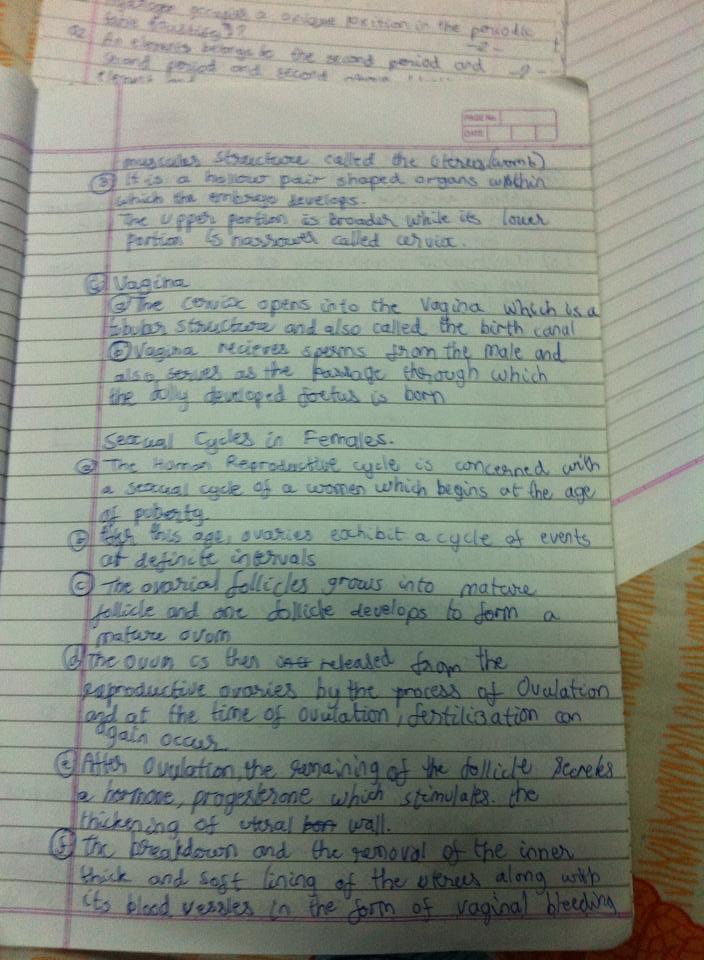 occupies a unique position in the periodic
table Justify??
Q2 An elements belongs to the second period and
second period and second
element and
PAGE No.
DATE
muscular structure called the Uterus (womb)
③ It is a hollow pair shaped organs within
which the embryo develops.
The Upper portion is broader while its lower
portion is narrower called cervix.
ⓒ Vagina
ⓐ The cervix opens into the Vagina which is a
tubular structure and also called the birth canal
ⓑ Vagina recieves sperms from the male and
also serves as the passage through which
the fully developed foetus is born
Sexual Cycles in Females.
ⓐ The Human Reproductive cycle is concerned with
a sexual cycle of a women which begins at the age
of puberty.
ⓑ After this age, ovaries exhibit a cycle of events
at definite intervals
ⓒ The ovarial follicles grows into mature
follicle and one follicle develops to form a
mature ovum
ⓓ The ovum is then released from the
reproductive ovaries by the process of Ovulation
and at the time of ovulation, fertilisation can
again occur.
ⓔ After Ovulation, the remaining of the follicle secretes
a hormone, progesterone which stimulates. the
thickening of uteral wall.
ⓕ The breakdown and the removal of the inner
thick and soft lining of the uterus along with
its blood vessles in the form of vaginal bleeding